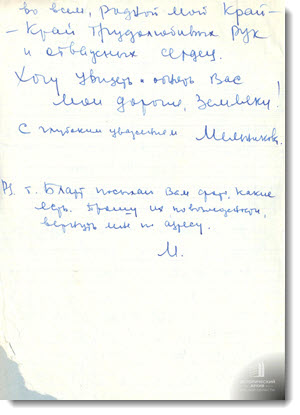 во всем, родной мой Край –
– Край трудолюбивых рук
и отважных сердец.
Хочу увидеть и обнять Вас
мои дорогие, Земляки!
С глубоким уважением Мельникова.
PS т. Блатт посылаю Вам фото, какие
есть. Прошу их по
вернуть мне по адресу.
М.
ИСТОРИЧЕСКИЙ
АРХИВ